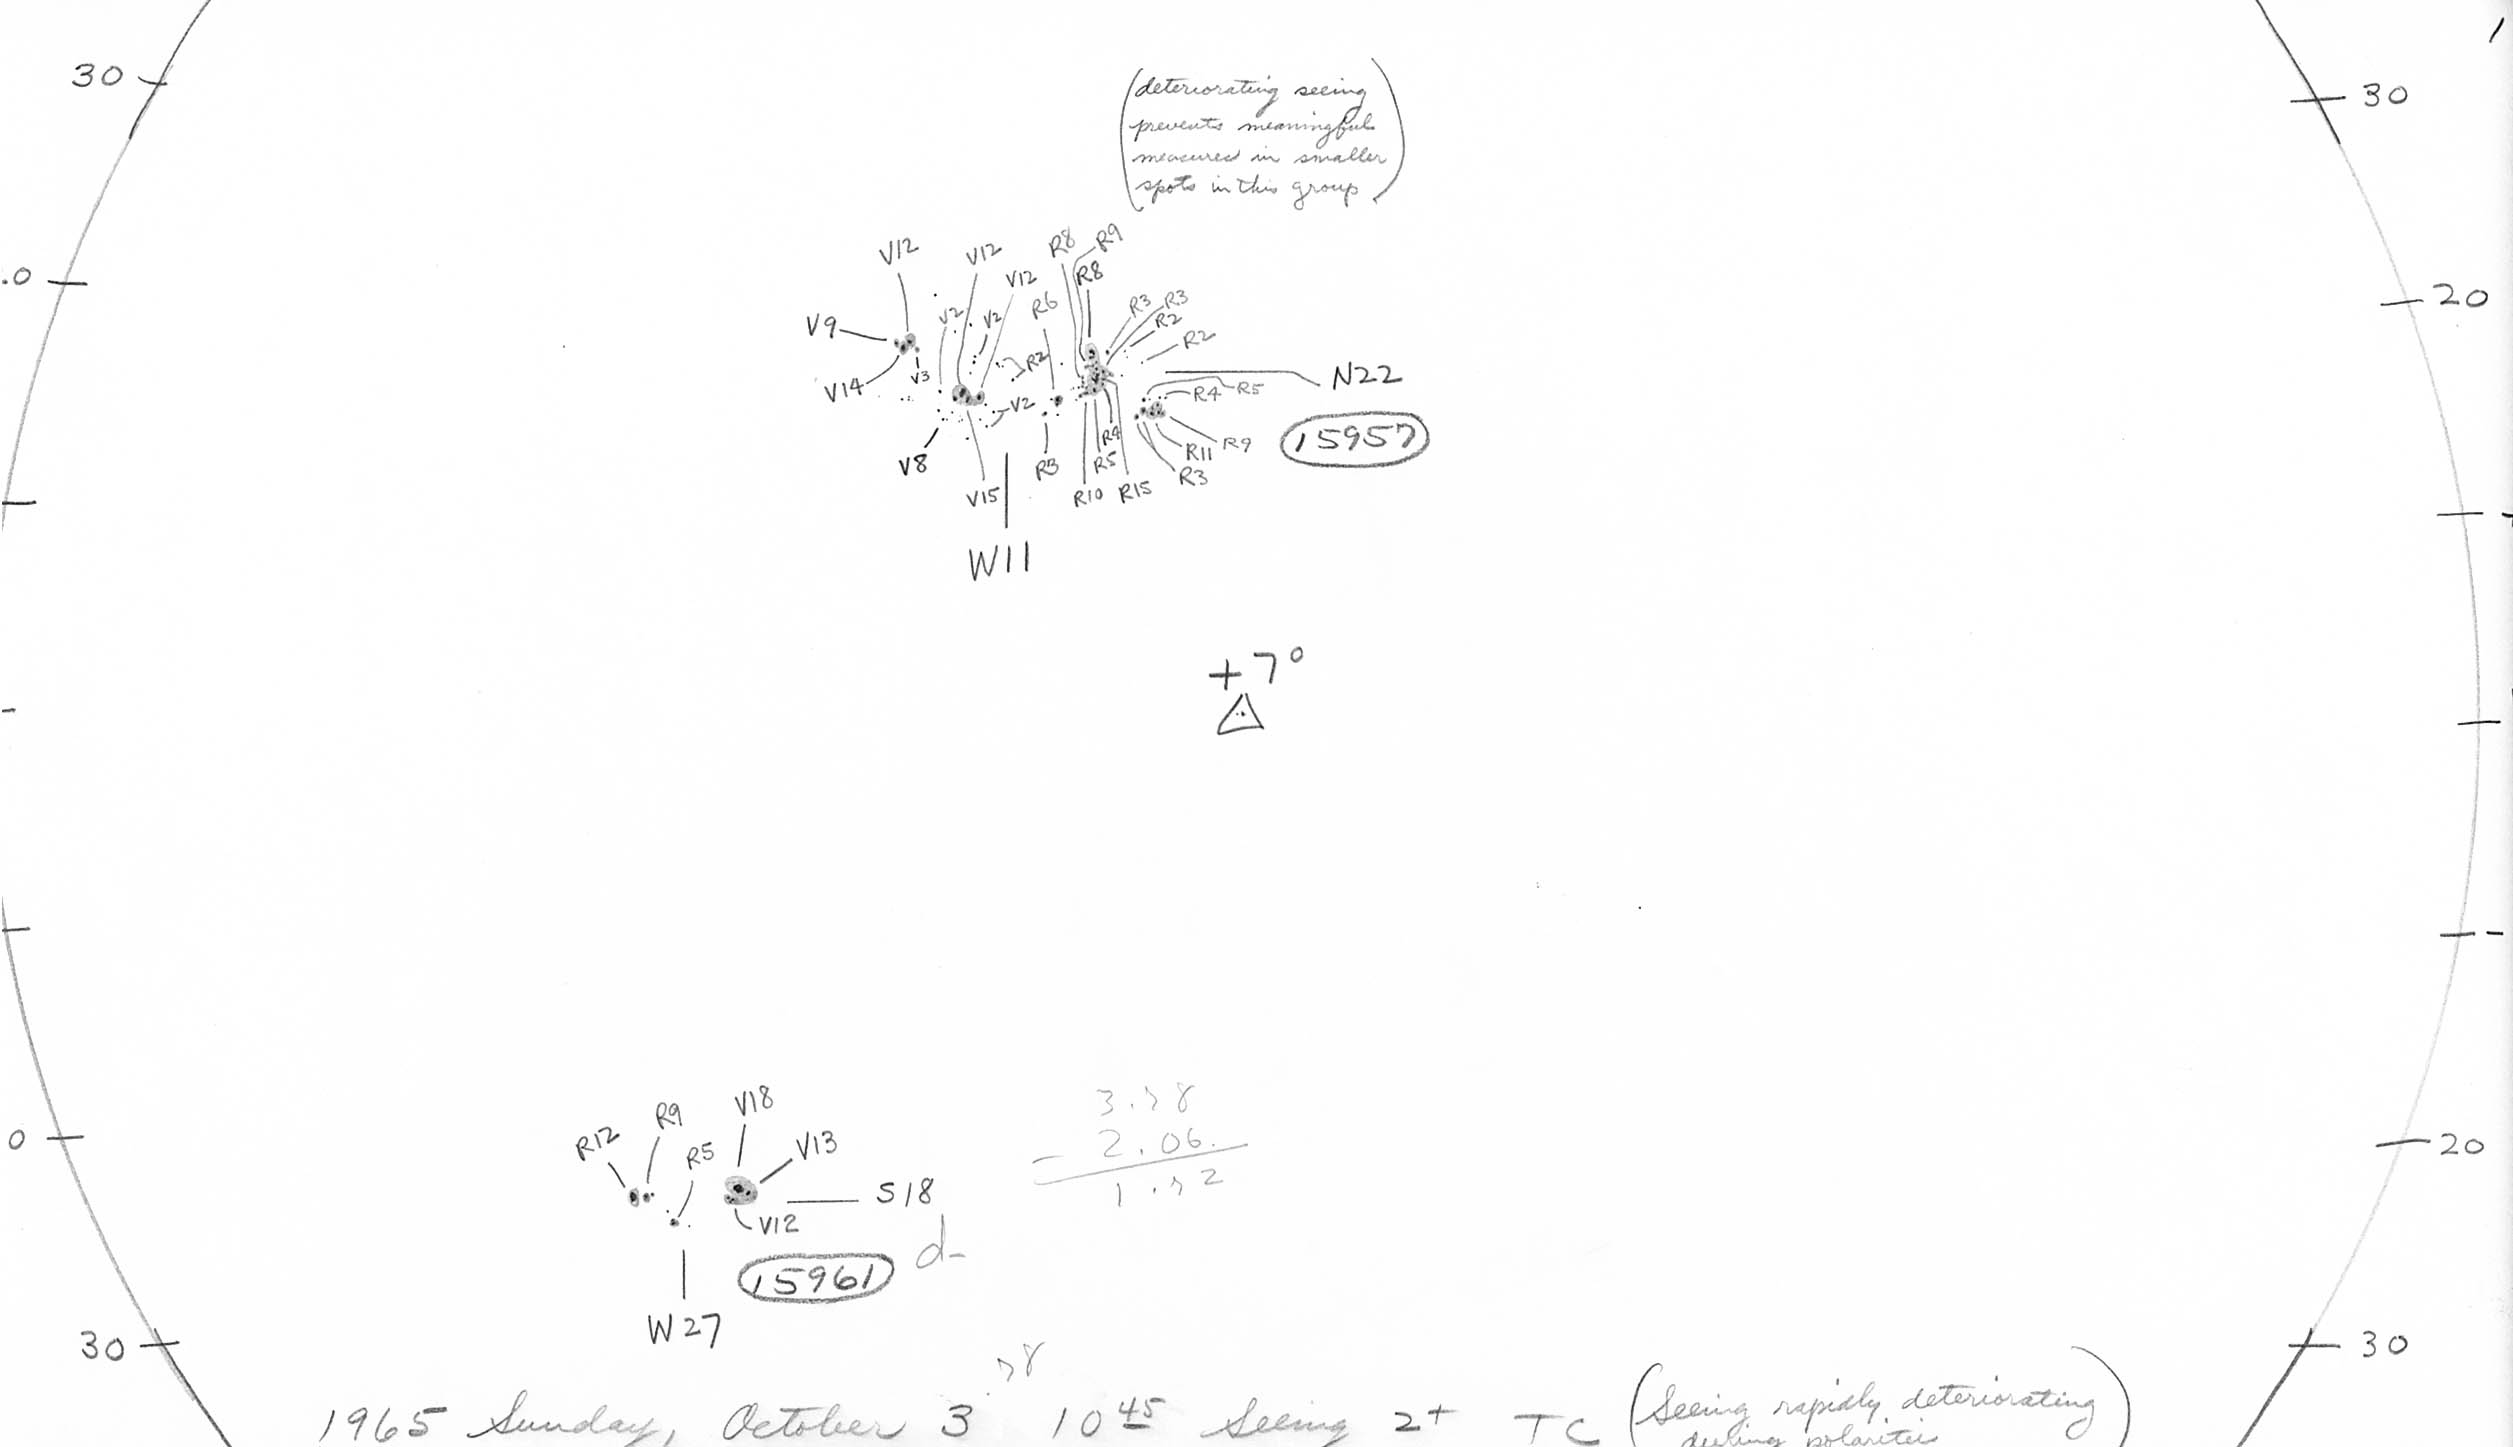 30
(deteriorating seeing
prevents meaningful
measures in smaller
spots in this group)
30
V12 V12 R8 R9
V12 R8
.0 20
V9 V2 V2 R6 R3 R3
R2
R2 R2
V14 V3 N22
V2 R4 R5
15957
V8 R3 R4 R5 R11 R9
R3
V15 R10 R15
W11
+7°
3.78
2.06
1.72
R12 R9 V18
R5 V13
0 20
S18
V12
d-
15961
W27
30 30
.78
1965 Sunday, October 3 10 45 Seeing 2+ TC (Seeing rapidly deteriorating
during polarities